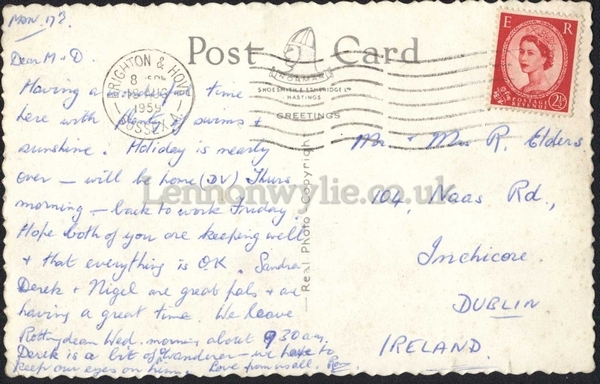 Mon 17?
Dear M + D.
Having a time
here with plenty of swims +
sunshine. Holiday is nearly
over – will be home (DV) Thurs
morning – back to work Friday.
Hope both of you are keeping well
+ that everything is O.K. Sandra
Derek + Nigel are great pals + are
having a great time. We leave
Rottingdean Wed. morning about 9.30 am.
Derek is a bit of a wanderer – we have to
keep our eyes on him. Love from us all.
Post Card
NORMAN
SHOESMITH & ETHERIDGE LTD
HASTINGS
GREETINGS
Real Photo Copyright
BRIGHTON & HOVE
8
AUG
1959
SUSSEX
E R
POSTAGE REVENUE
2½D
Mr + Mrs R. Elders
104, Naas Rd.,
Inchicore.
DUBLIN
IRELAND.
Lennonwylie.co.uk